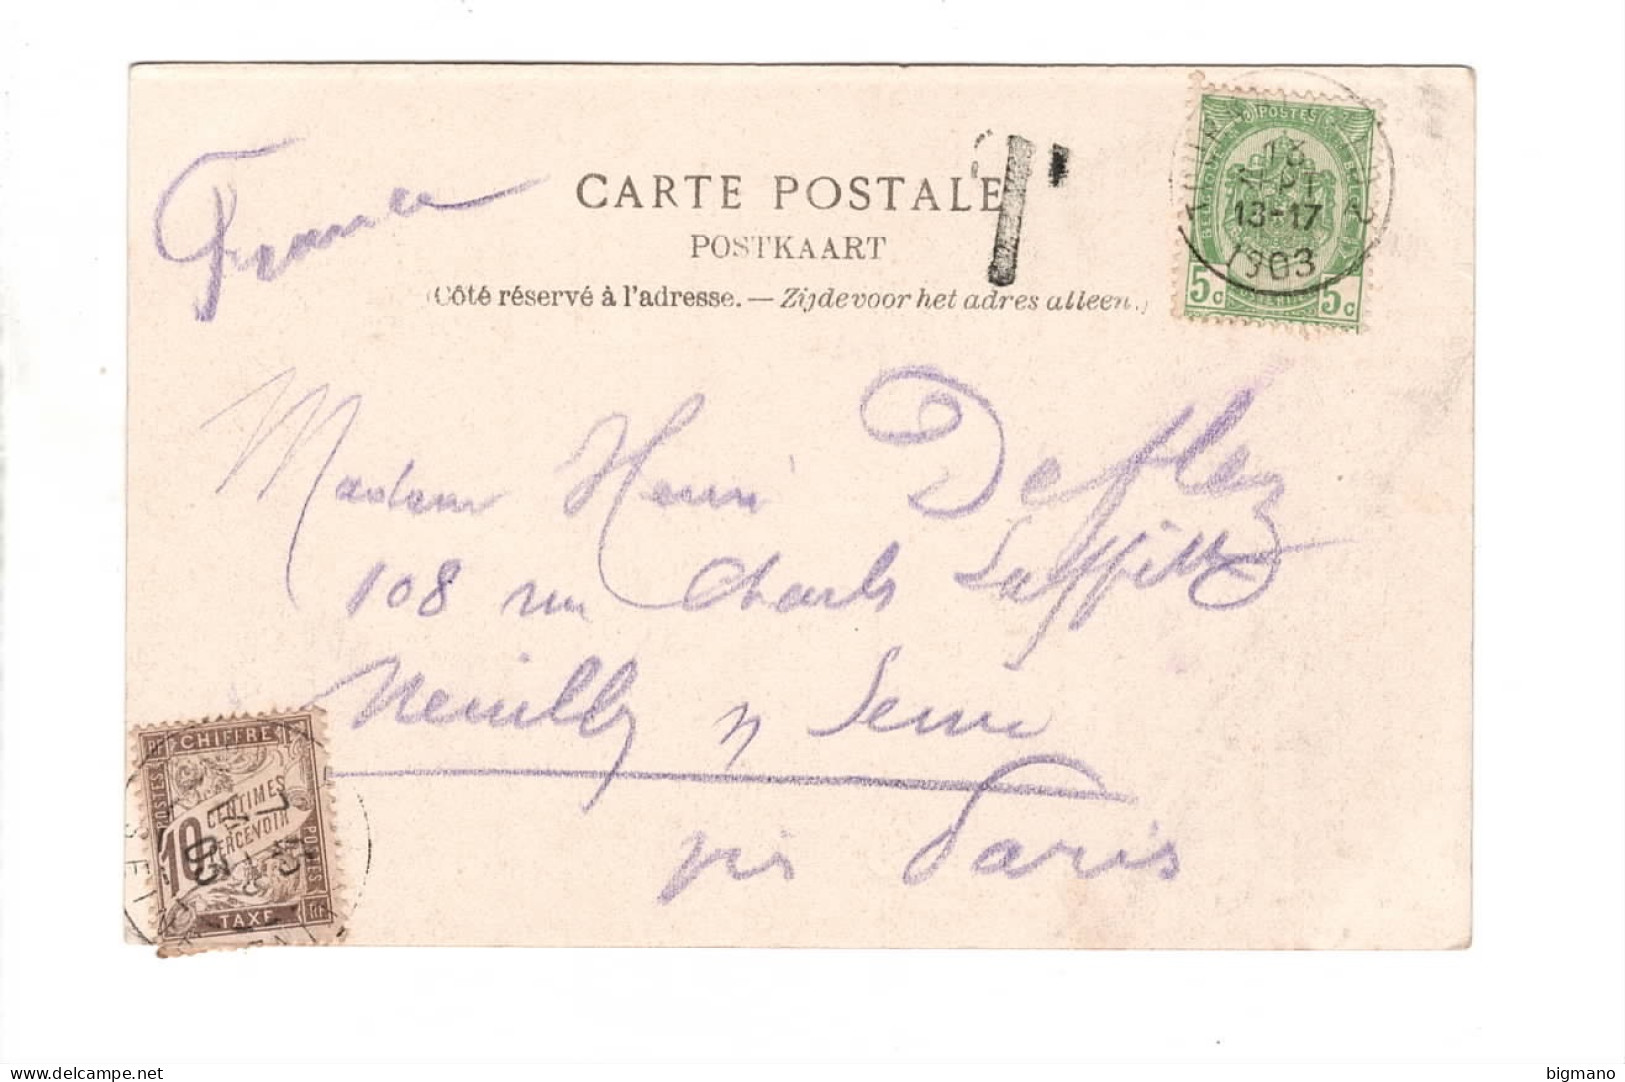 France
CARTE POSTALE
POSTKAART
(Côté réservé à l'adresse. — Zijde voor het adres alleen.)
T
POSTES
13-17
1903
5c 5c
Madame Henri
108 rue Charles Laffitte
Neuilly s/ Seine
près Paris
CHIFFRE
POSTES
10 CENTIMES
PERCEVOIR
POSTES
TAXE
www.delcampe.net
bigmano